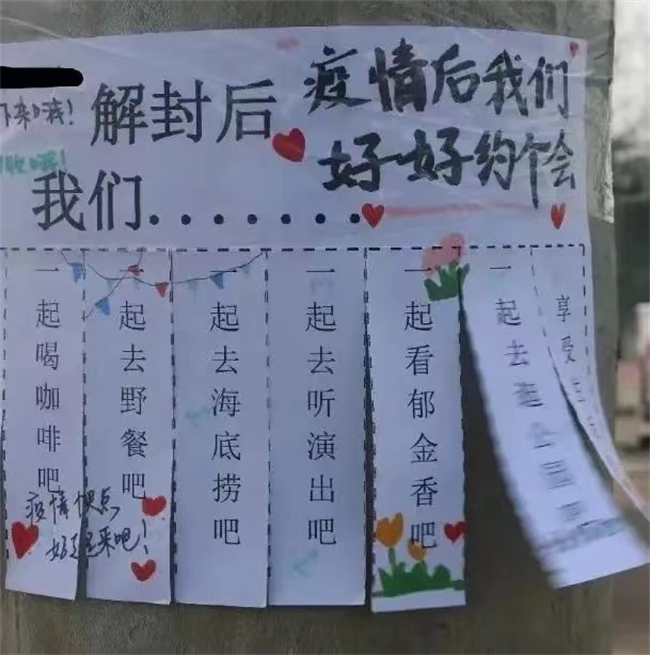 疫情后我们
好好约个会
下来嗨！
解封后
我们.......
一起喝咖啡吧
一起去野餐吧
一起去海底捞吧
一起去听演出吧
一起看郁金香吧
一起去逛公园吧
享受
疫情快点
好起来吧！